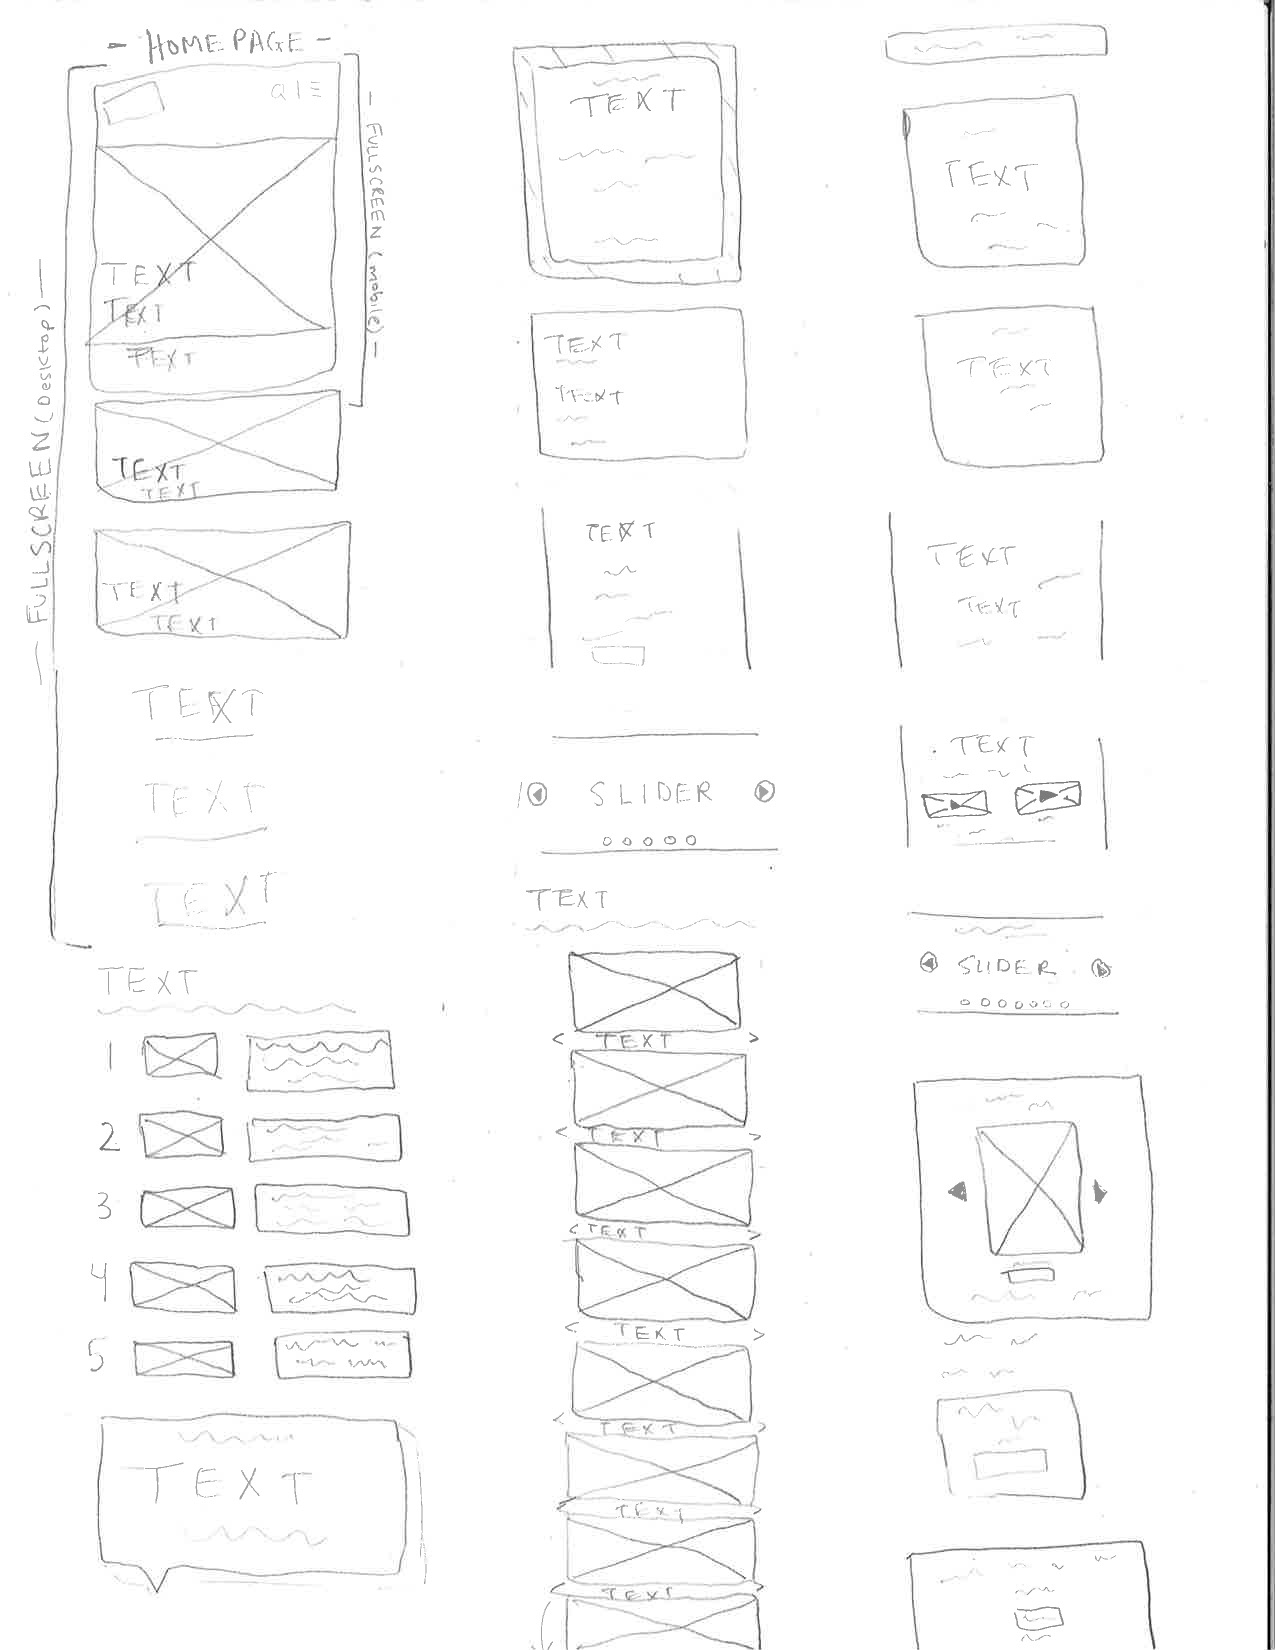 - HOMEPAGE -
TEXT
TEXT
TEXT
- FULLSCREEN (mobile) -
- FULLSCREEN (Desktop) -
TEXT
TEXT
TEXT
TEXT
TEXT
TEXT
TEXT
TEXT
1
2
3
4
5
TEXT
TEXT
TEXT
TEXT
TEXT
SLIDER
TEXT
< TEXT >
< TEXT >
< TEXT >
< TEXT >
< TEXT >
TEXT
TEXT
TEXT
TEXT
TEXT
TEXT
TEXT
SLIDER